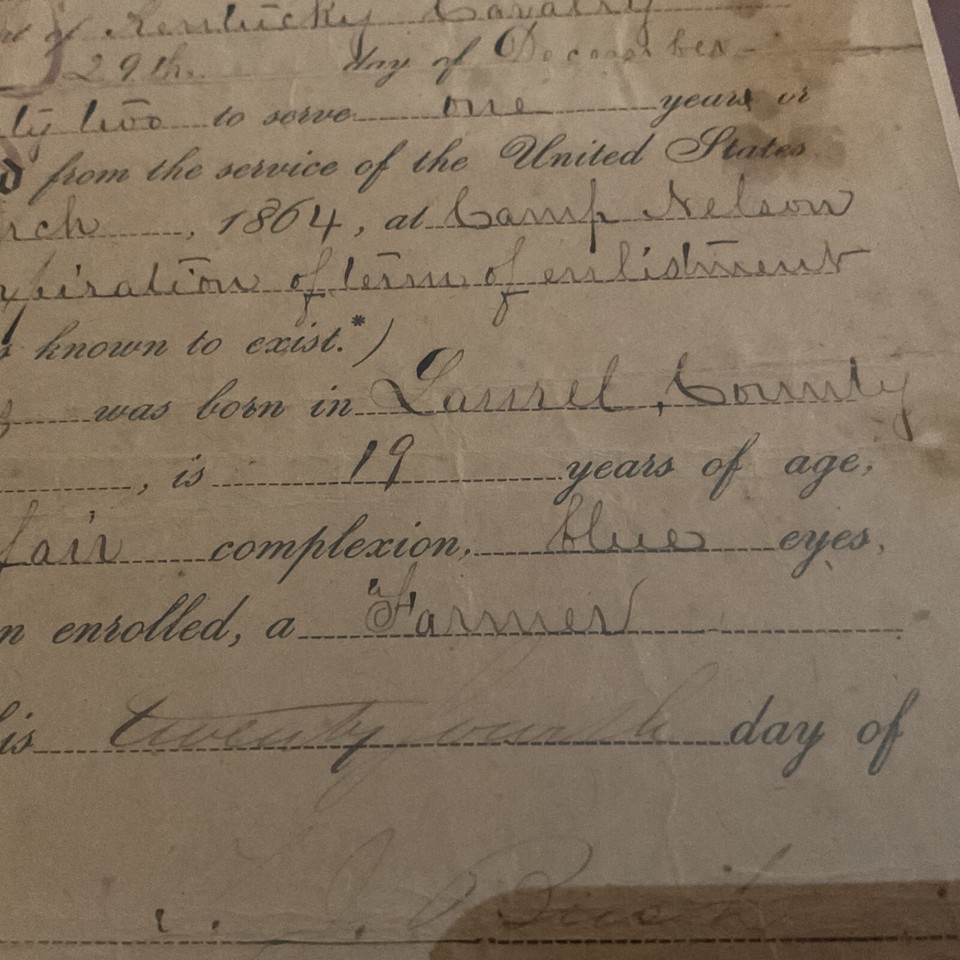 of Kentucky Cavalry
29th. day of December
ty two to serve one years or
d from the service of the United States
rch , 1864, at Camp Nelson
xpiration of term of enlistment
s known to exist.*)
was born in Laurel, County
, is 19 years of age,
fair complexion, blue eyes,
n enrolled, a Farmer
is twenty fourth day of